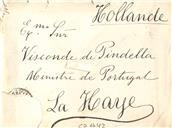 Hollande
Exmo Snr
Visconde de Pindella
Ministre de Portugal
La Haye